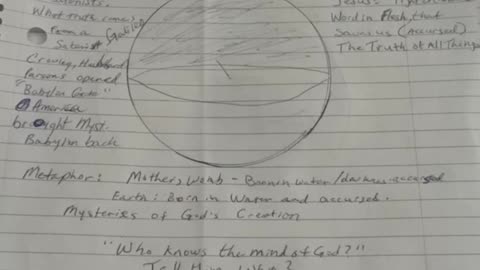 What truth comes
from a
Satanist
Crowley, Hubbard
Parsons opened
"Babylon Gate"
America
brought Myst.
Babylon back
Word in Flesh, that
Saves us (accursed)
The Truth of All Things
Metaphor: Mother's womb - Born in water/darkness-accursed
Earth: Born in Water and accursed.
Mysteries of God's Creation
"Who knows the mind of God?"